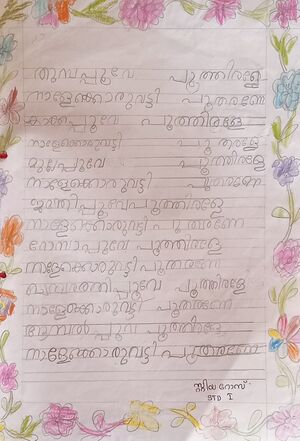 തുമ്പപ്പൂവേ പൂത്തിരളേ
നാളേക്കൊരുവട്ടി പൂതരണേ
കാക്കപ്പൂവേ പൂത്തിരളേ
നാളേക്കൊരുവട്ടി പൂതരണേ
മുല്ലപ്പൂവേ പൂത്തിരളേ
നാളേക്കൊരുവട്ടി പൂതരണേ
പൂത്തിരളേ
നാളേക്കൊരുവട്ടി പൂതരണേ
റോസാപ്പൂവേ പൂത്തിരളേ
നാളേക്കൊരുവട്ടി പൂതരണേ
പൂത്തിരളേ
നാളേക്കൊരുവട്ടി പൂതരണേ
പൂത്തിരളേ
നാളേക്കൊരുവട്ടി പൂതരണേ
റോസ്
STD I